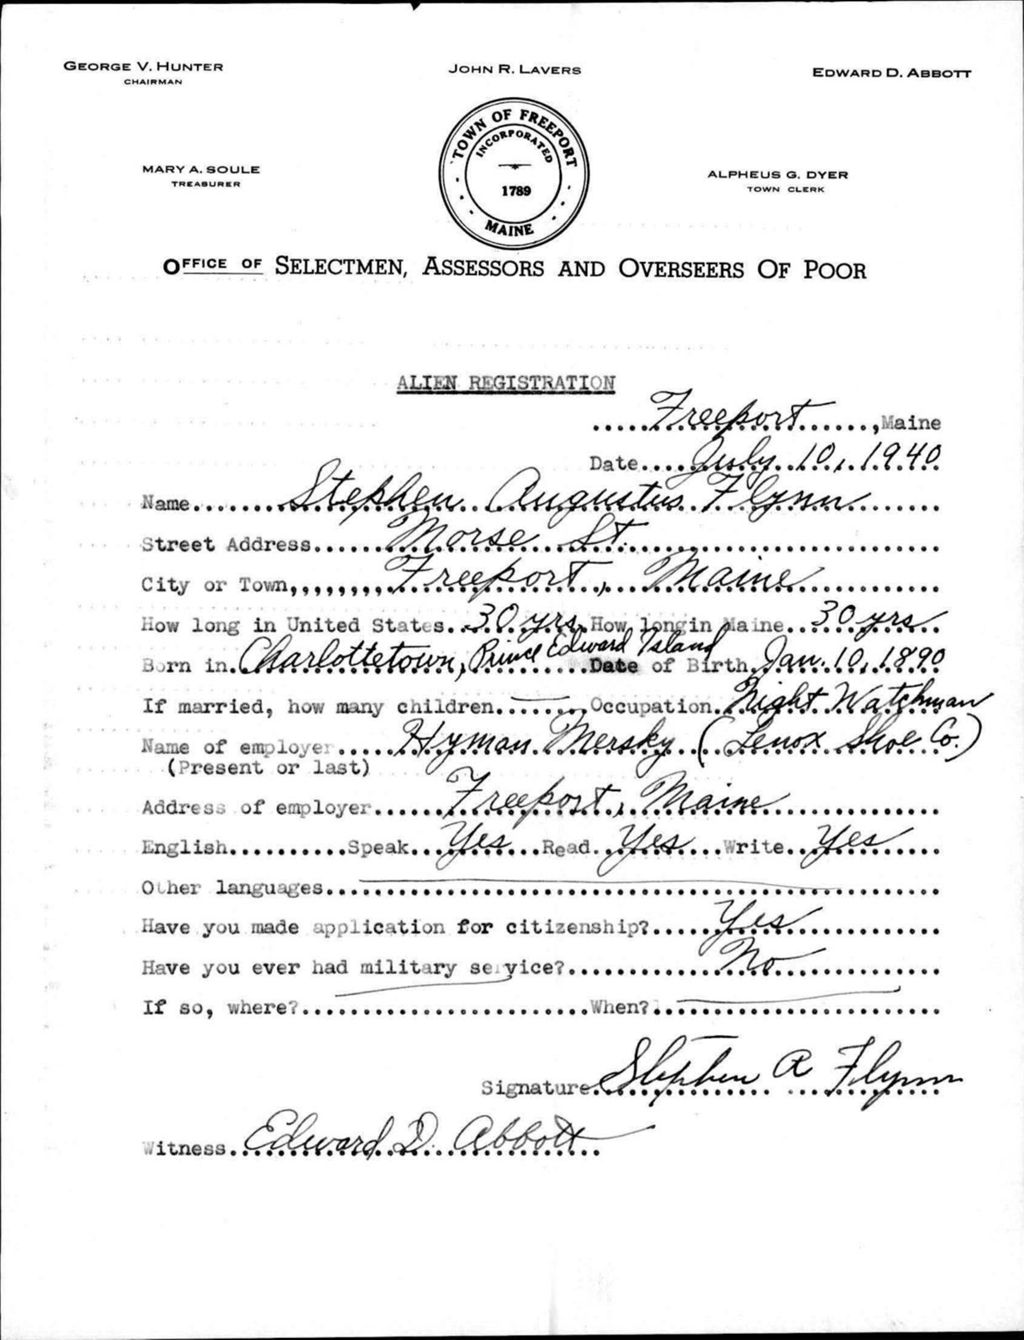 GEORGE V. HUNTER
CHAIRMAN
JOHN R. LAVERS
EDWARD D. ABBOTT
TOWN OF FREEPORT
INCORPORATED
1789
MAINE
MARY A. SOULE
TREASURER
ALPHEUS G. DYER
TOWN CLERK
OFFICE OF SELECTMEN, ASSESSORS AND OVERSEERS OF POOR
ALIEN REGISTRATION
.....Freeport......,Maine
Date....July 10, 1940
Name........Stephen Augustus Flynn.......
Street Address......Morse St...................
City or Town,,,,,,,,,Freeport, Maine..........
How long in United States..30 yrs. How longin Maine...30 yrs..
Born in.Charlottetown, Prince Edward Island Date of Birth.Jan. 10, 1890
If married, how many children.......Occupation.Night Watchman
Name of employer.....Hyman Mersky (Lenox Shoe Co.)
(Present or last)
Address of employer......Freeport, Maine...........
English..........Speak...Yes...Read..Yes...Write..Yes.....
Other languages.............................................
Have you made application for citizenship?.....Yes............
Have you ever had military service?............No............
If so, where?.........................When?.......................
Signature Stephen A Flynn
Witness..Edward D. Abbott..